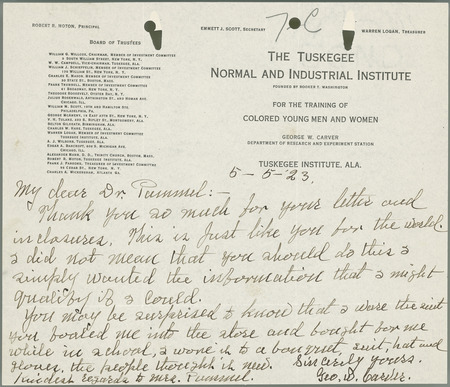 ROBERT R. MOTON, PRINCIPAL
EMMETT J. SCOTT, SECRETARY
7-C
WARREN LOGAN, TREASURER
BOARD OF TRUSTEES
WILLIAM G. WILLCOX, CHAIRMAN, MEMBER OF INVESTMENT COMMITTEE
3 SOUTH WILLIAM STREET, NEW YORK, N. Y.
W. W. CAMPBELL, VICE-CHAIRMAN, TUSKEGEE, ALA.
WILLIAM J. SCHIEFFELIN, MEMBER OF INVESTMENT COMMITTEE
170 WILLIAM ST., NEW YORK, N. Y.
CHARLES E. MASON, MEMBER OF INVESTMENT COMMITTEE
STATE ST., BOSTON, MASS.
FRANK TRUMBULL, MEMBER OF INVESTMENT COMMITTEE
BROADWAY, NEW YORK, N. Y.
THEODORE ROOSEVELT, OYSTER BAY, N. Y.
JULIUS ROSENWALD, ARTHINGTON ST., AND HOMAN AVE.
CHICAGO, ILL.
WILLIAM M. SCOTT, HAMILTON STS.
PHILADELPHIA, PA.
GEORGE MCANENY, NEW YORK, N. Y.
V. H. TULANE, MONTGOMERY, ALA.
BELTON GILREATH, BIRMINGHAM, ALA.
CHARLES W. HARE, TUSKEGEE, ALA.
WARREN LOGAN, MEMBER OF INVESTMENT COMMITTEE
TUSKEGEE INSTITUTE, ALA.
EDGAR A. BANCROFT, MICHIGAN AVE.
CHICAGO, ILL.
ALEXANDER MANN, D. D., TRINITY CHURCH, BOSTON, MASS.
ROBERT R. MOTON, TUSKEGEE INSTITUTE, ALA.
MEMBER OF INVESTMENT COMMITTEE
CEDAR ST., NEW YORK, N. Y.
CHARLES A. WICKERSHAM, ATLANTA, GA.
THE TUSKEGEE
NORMAL AND INDUSTRIAL INSTITUTE
FOUNDED BY BOOKER T. WASHINGTON
FOR THE TRAINING OF
COLORED YOUNG MEN AND WOMEN
GEORGE W. CARVER
DEPARTMENT OF RESEARCH AND EXPERIMENT STATION
TUSKEGEE INSTITUTE, ALA.
5-5-23.
My dear Dr. Pammel:-
Thank you so much for your letter and
inclosures. This is just like you for the world.
I did not mean that you should do this I
simply wanted the information that I might
qualify if I could.
You may be surprised to know that I wore the suit
you me into the store and bought for me
while in school, I wore it to a banquet, suit, hat and
gloves, the people thought it new. Sincerely yours.
Kindest regards to Mrs. Pammel. Geo. W. Carver.